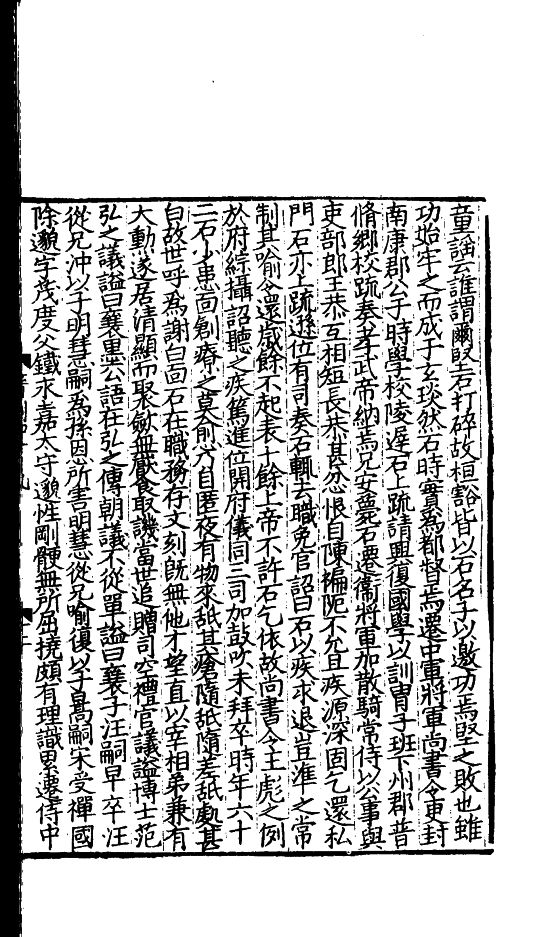 童謡云誰謂爾堅石打碎故桓豁皆以石名子以邀功焉堅之敗也雖
功始牢之而成于玄琰然石時實為都督焉遷中軍將軍尚書令更封
南康郡公于時學校陵遲石上疏請興復國學以訓胄子班下州郡普
脩鄉校疏奏孝武帝納焉兄安薨石遷衛將軍加散騎常侍以公事與
吏部郎王恭互相短長恭甚忿恨自陳褊阨不允且疾源深固乞還私
門石亦上疏遜位有司奏石輒去職免官詔曰石以疾求退豈準之常
制其喻令還歲餘不起表十餘上帝不許石乞依故尚書令王彪之例
於府綜攝詔聽之疾篤進位開府儀同三司加鼓吹未拜卒時年六十
二石少患面創療之莫愈乃自匿夜有物來舐其瘡隨舐隨差舐處甚
白故世呼為謝白面石在職務存文刻既無他才望直以宰相弟兼有
大勳遂居清顯而聚斂無厭取譏當世追贈司空禮官議謚博士范
弘之議謚曰襄墨公語在弘之傳朝議不從單謚曰襄子汪嗣早卒汪
從兄沖以子明慧嗣為孫恩所害明慧從兄喻復以子暠嗣宋受禪國
除邈字茂度父鐵永嘉太守邈性剛骾無所屈撓頗有理識累遷侍中